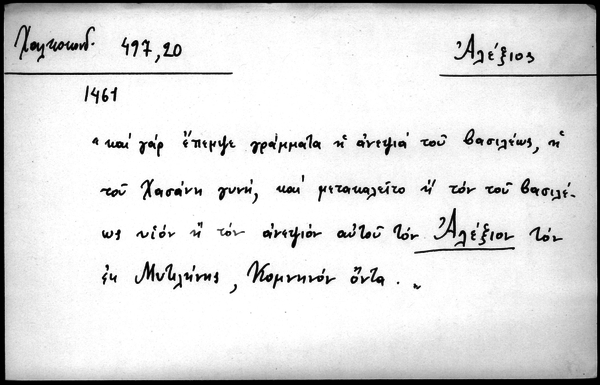 Χαλκοκονδ. 497,20 Ἀλέξιος
1461
"καὶ γάρ ἔπεμψε γράμματα ἡ ἀνεψιά τοῦ βασιλέως, ἡ
τοῦ Χασάνη γυνή, καί μετακαλεῖτο ἤ τόν τοῦ βασιλέ-
ως υἱόν ἤ τόν ἀνεψιόν αὐτοῦ τόν Ἀλέξιον τόν
ἐκ Μυτιλήνης, Κομνηνόν ὄντα."